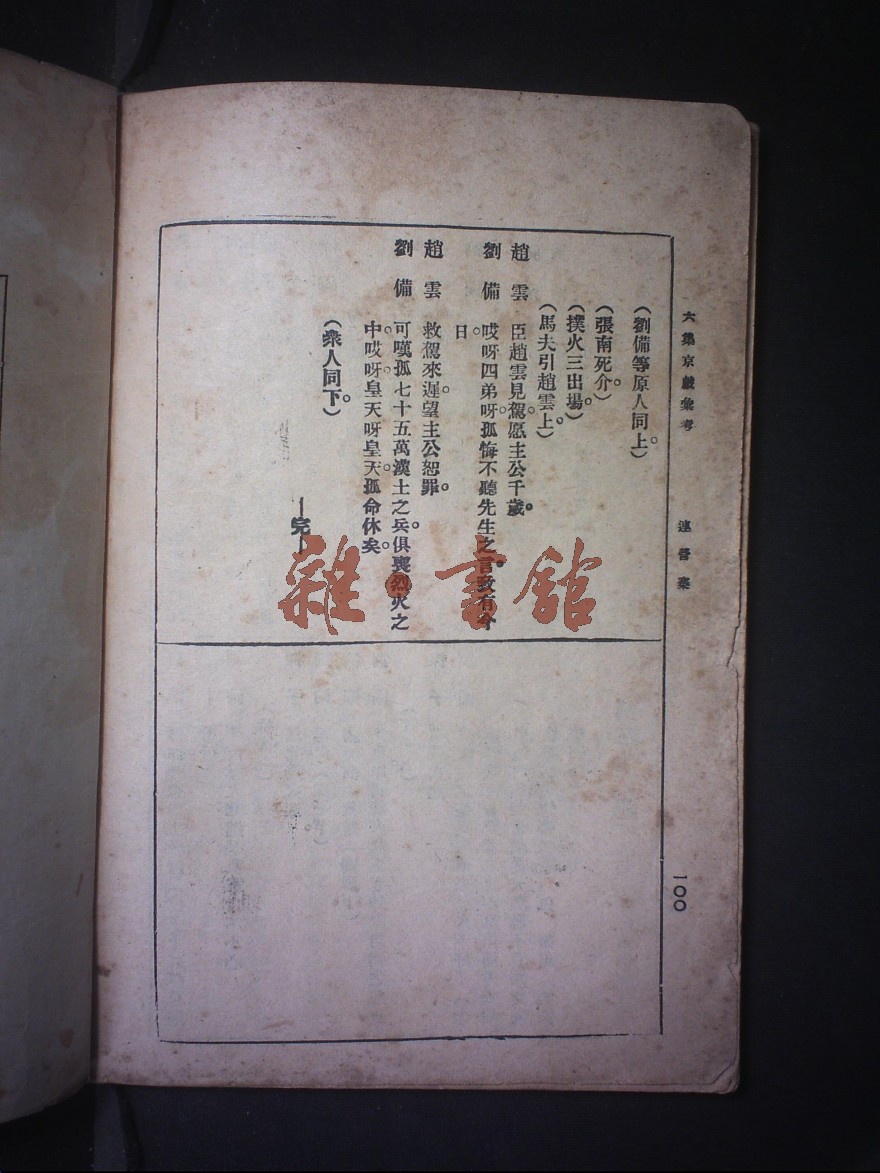 六集京戲彙考
連營寨
一〇〇
(劉備等原人同上。)
(張南死介。)
(撲火三出場。)
(馬夫引趙雲上。)
趙雲 臣趙雲見駕愿主公千歲。
劉備 哎呀四弟呀。孤悔不聽先生之言。致有今
日。
趙雲 救駕來遲。望主公恕罪。
劉備 可嘆孤七十五萬漢土之兵。俱喪烈火之
中。哎呀皇天呀皇天。孤命休矣。
(衆人同下。)
—完—
雜·書館